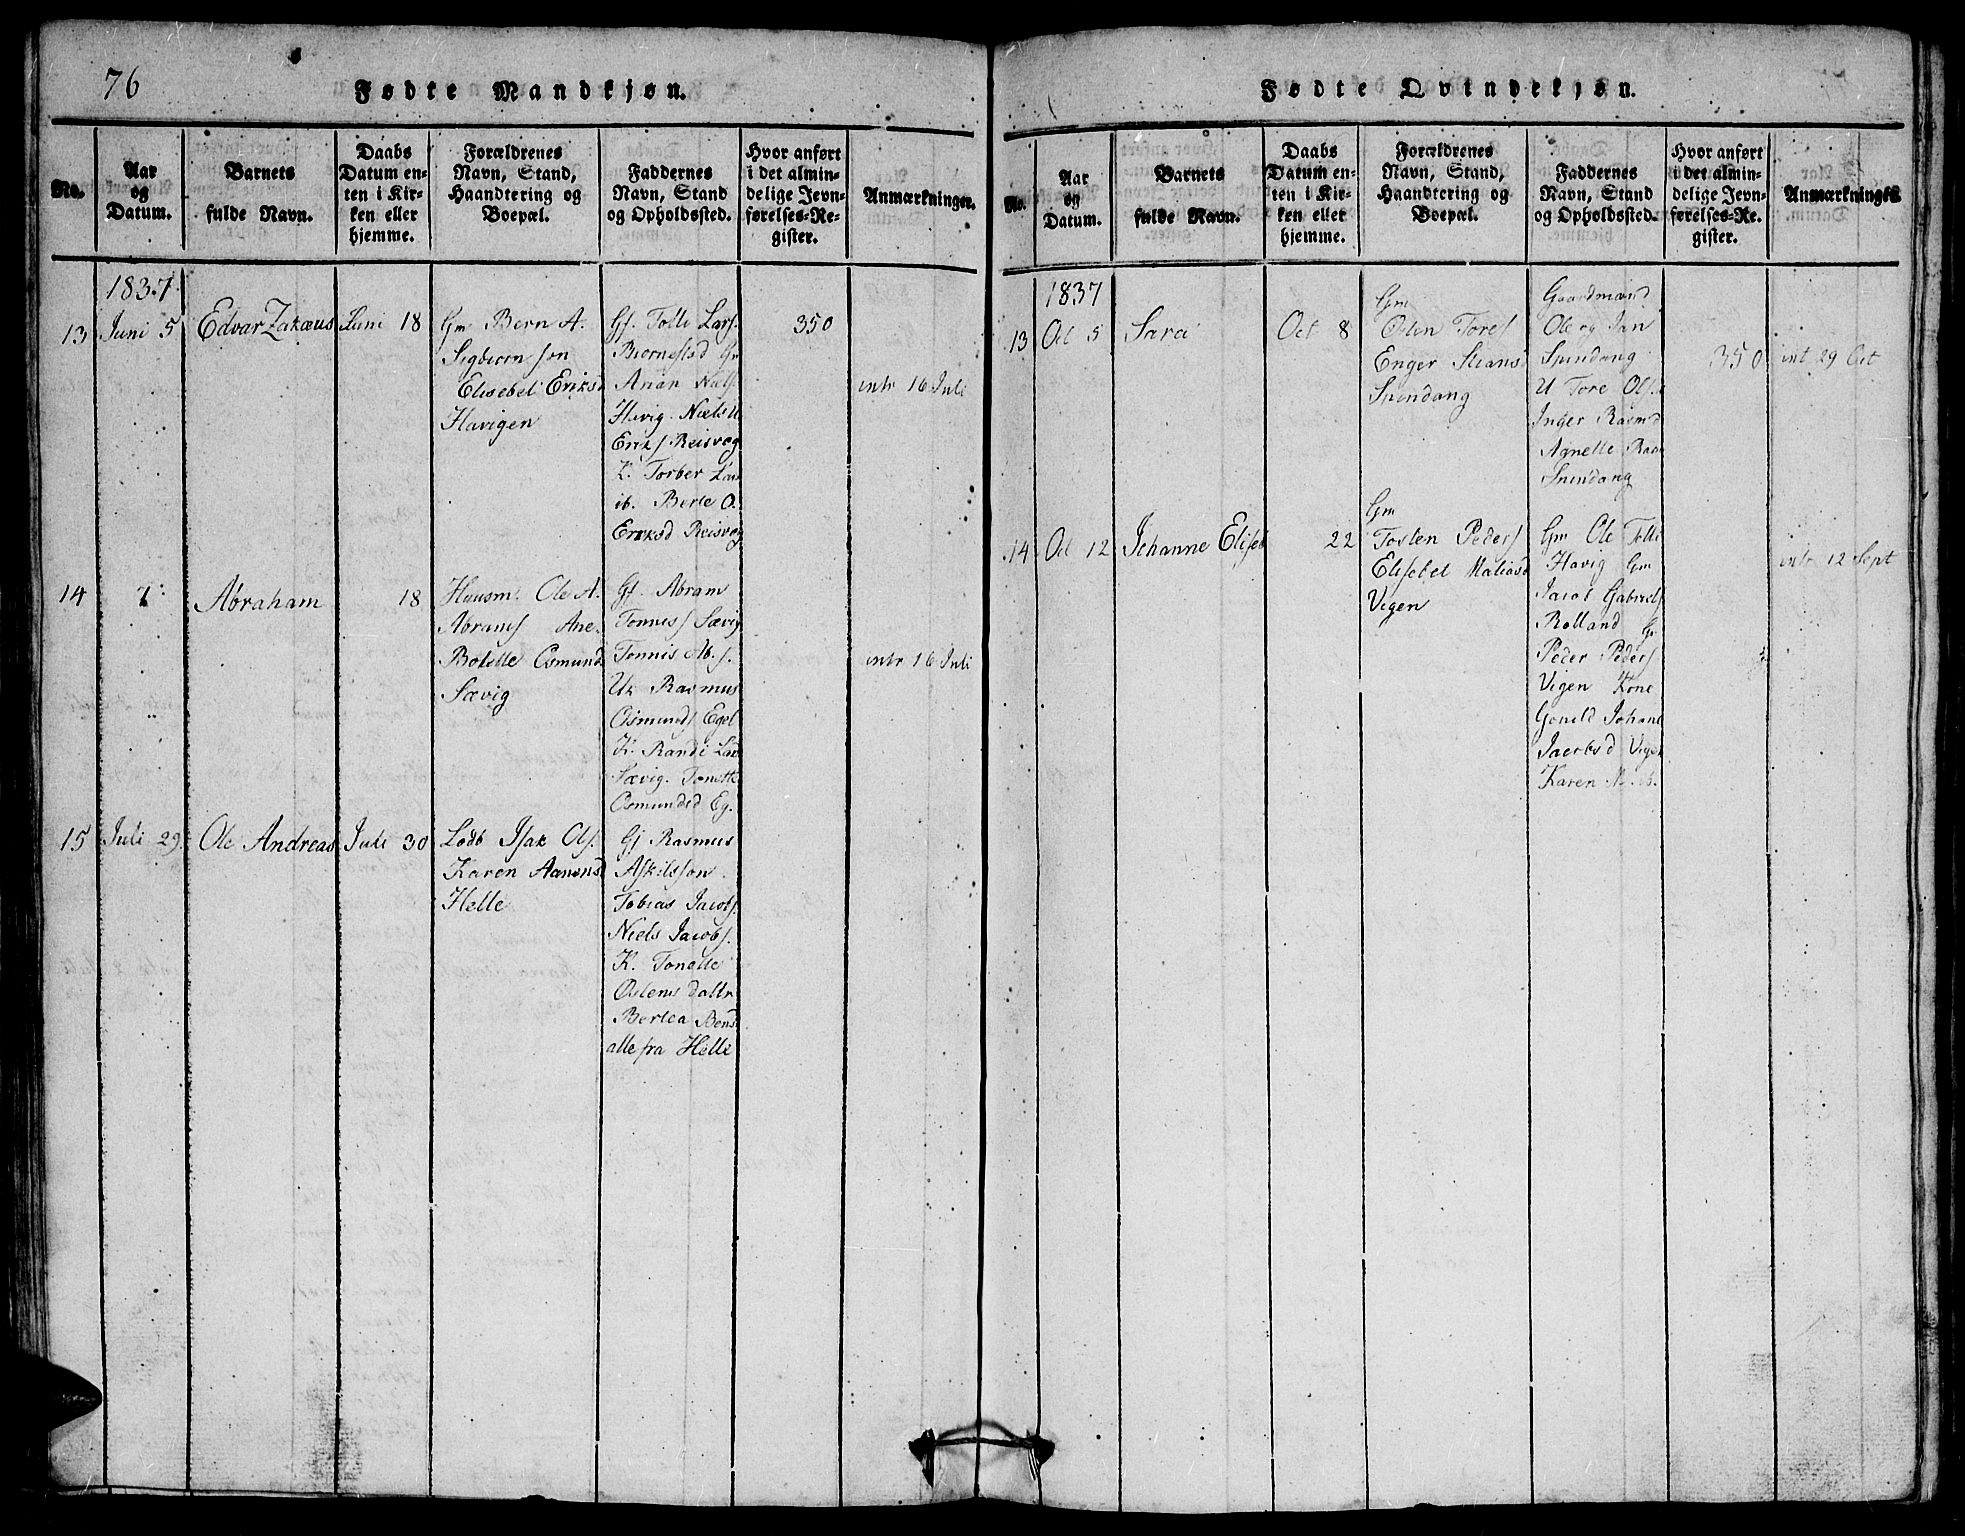 76
Fødte Mandkjøn.
No.
Aar
og
Datum.
Barnets
fulde Navn.
Daabs
Datum en-
ten i Kir-
ken eller
hjemme.
Forældrenes
Navn, Stand,
Haandtering og
Boepæl.
Faddernes
Navn, Stand
og Opholdssted.
Hvor anført
i det almin-
delige Jevn-
førelses-Re-
gister.
Anmærkninger.
1837
13
Juni 5
Edvar Zakæus
Juni 18
Gm Bern A.
Sigbiørnsøn
Elisebet Eriksd
Havigen
Gf. Tolle Lars.
Biørnestad Gm
Anan Niels
Havig. Niels U
Eriks Reisvog
K. Torber Lar
ib. Berte O.
Eriksd Reisvog
350
intr 16 Juli
14
7
Abraham
18
Huusm. Ole A.
Abrams Ane
Botelle Osmund
Sævig
Gf. Abram
Tønnis Sævig
Tønnis Ab.
Uk Rasmus
Osmunds Egel
K. Randi Lar
Sævig. Tonette
Osmundsd Eg.
intr 16 Juli
15
Juli 29
Ole Andreas
Juli 30
Lodb Isak Ols.
Karen Aanensd
Helle
Gf Rasmus
Askilsson
Tobias Jacobs.
Niels Jacobs.
K. Tonette
Ostens dattr
Bertea Bens
alle fra Helle
Fødte Qvindekjøn.
No.
Aar
og
Datum.
Barnets
fulde Navn.
Daabs
Datum en-
ten i Kir-
ken eller
hjemme.
Forældrenes
Navn, Stand,
Haandtering og
Boepæl.
Faddernes
Navn, Stand
og Opholdssted.
Hvor anført
i det almin-
delige Jevn-
førelses-Re-
gister.
Anmærkninger
1837
13
Oct 5
Sara
Oct 8
Gm
Osten Tores
Enger Stians
Spindang
Gaardmænd
Ole og Jan
Spindang
U Tore Ols.
Inger Rasmd
Agnette Ram
Spindang
350
int 29 Oct
14
Oct 12
Johanne Eliseb
22
Gm
Tosten Peders
Elisebet Matiasd
Vigen
Gm Ole Tolle
Havig Gm
Jacob Gabriels
Rolland Gm
Peder Peders
Vigen Kone
Gonild Johane
Jacobsd Vigen
Karen
intr 12 Sept